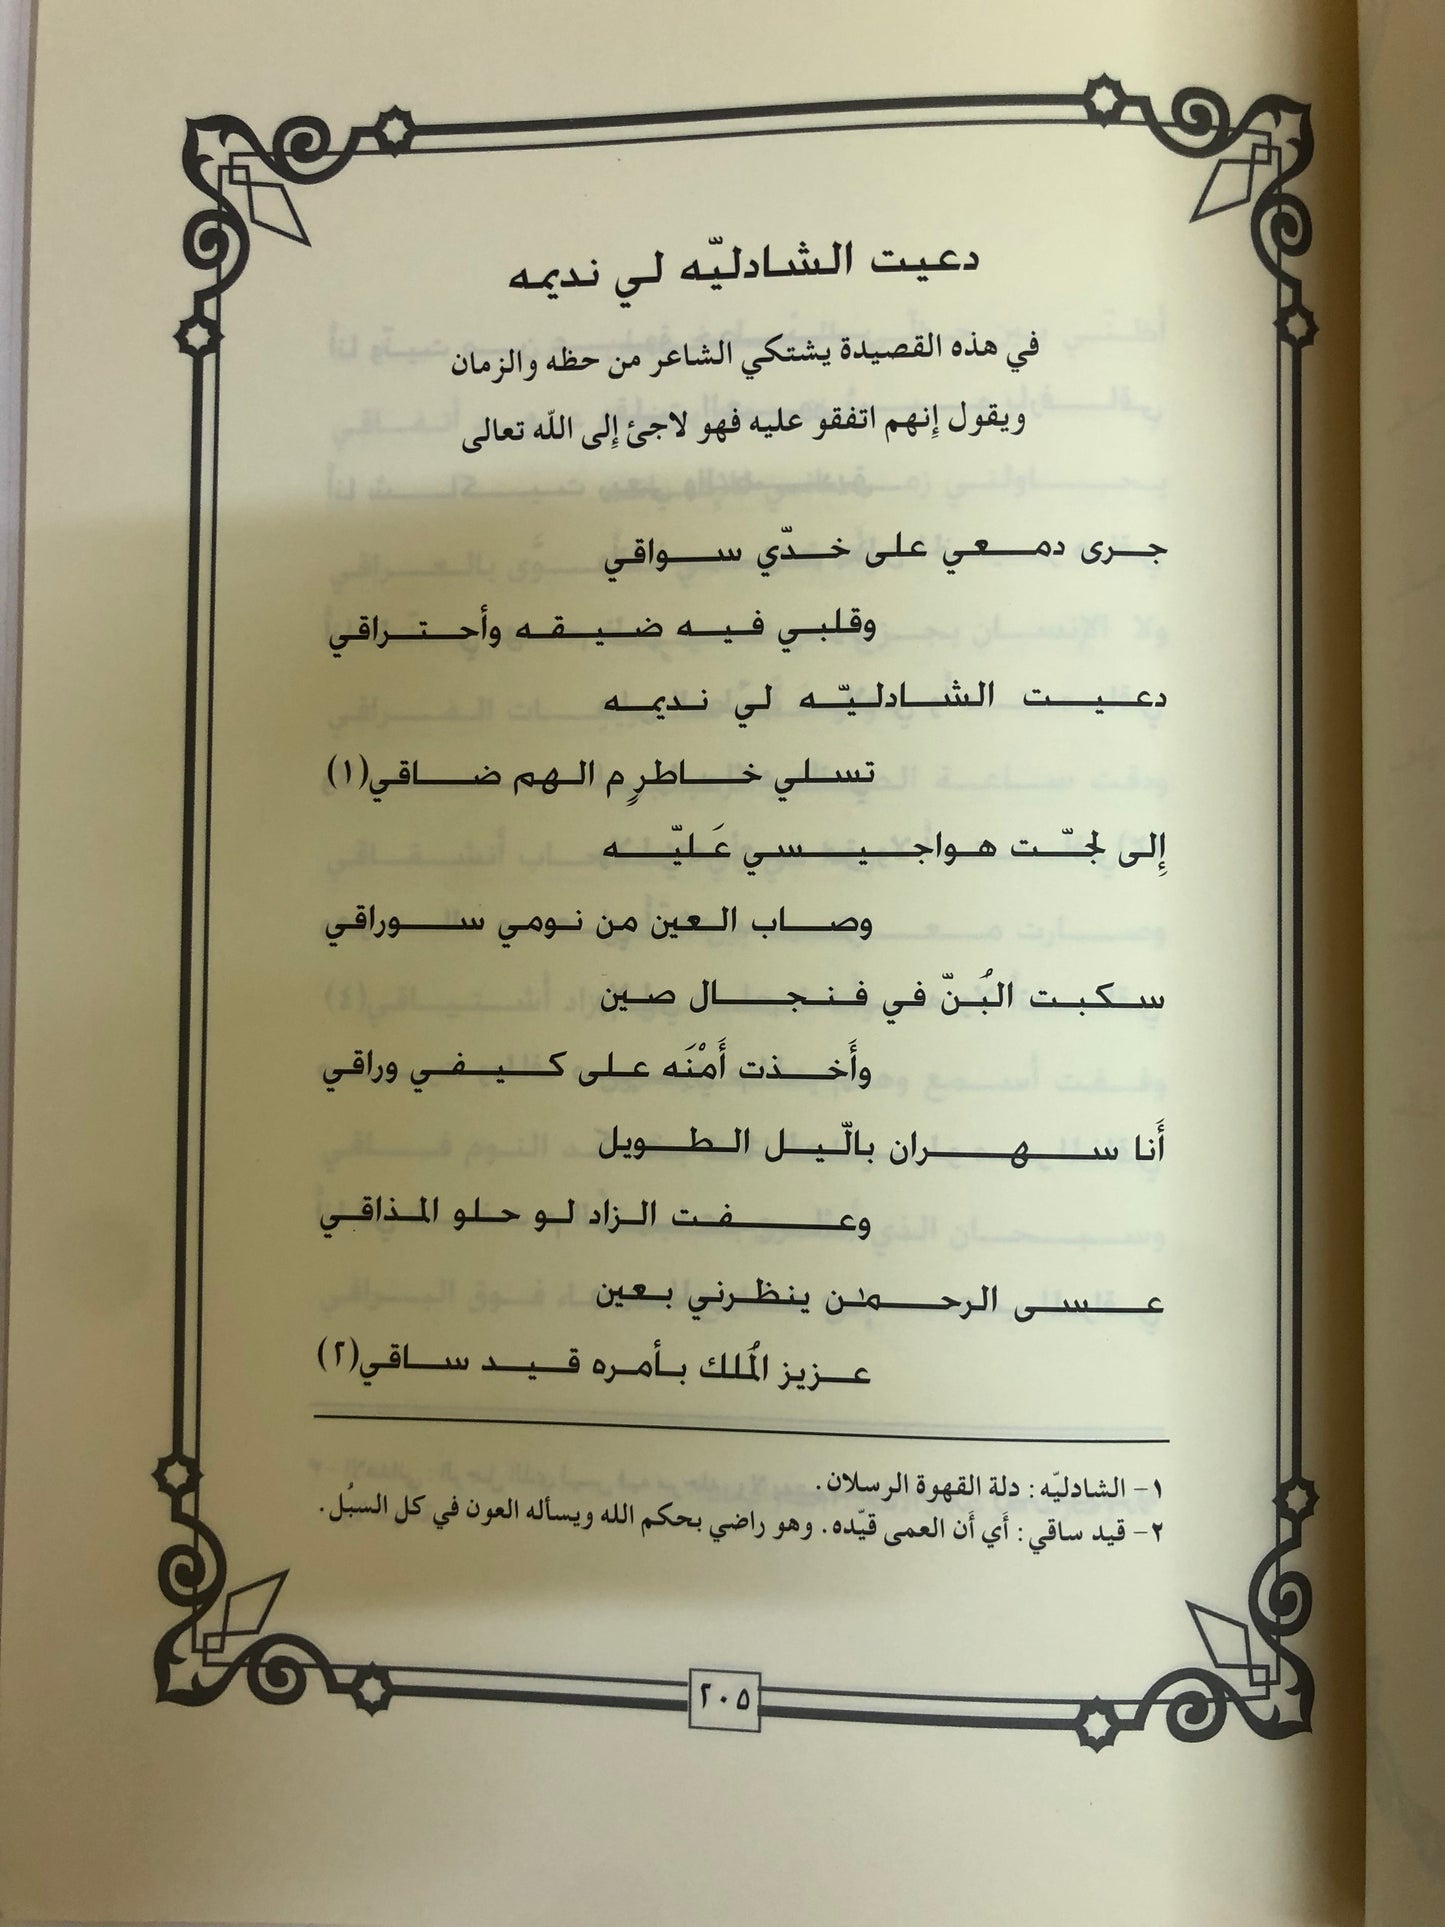 دعيت الشادليّه لي نديمه
في هذه القصيدة يشتكي الشاعر من حظه والزمان
ويقول إنهم اتفقو عليه فهو لاجئ إلى الله تعالى
جرى دمعي على خدّي سواقي
وقلبي فيه ضيقه وأحتراقي
دعيت الشادليّه لي نديمه
تسلي خاطرٍ م الهم ضاقي(١)
إلى لجّت هواجيسي عَليّه
وصاب العين من نومي سوراقي
سكبت البُنّ في فنجال صين
وأَخذت أَمْنَه على كيفي وراقي
أَنا سهران بالّيل الطويل
وعفت الزاد لو حلو المذاقي
عسى الرحمٰن ينظرني بعين
عزيز المُلك بأمره قيد ساقي(٢)
١- الشادليّه: دلة القهوة الرسلان.
٢- قيد ساقي: أَي أَن العمى قيّده. وهو راضي بحكم الله ويسأله العون في كل السبُل.
٢٠٥